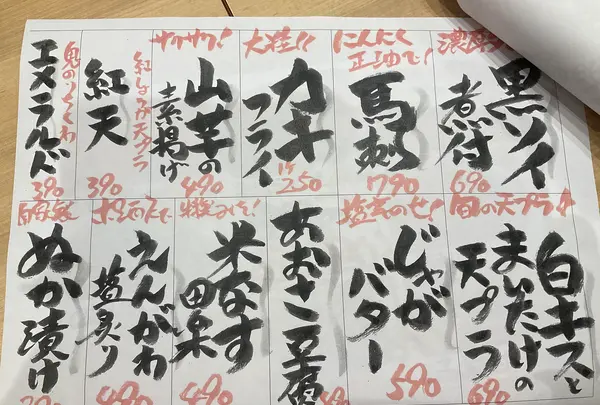 黒ソイ
煮付
690
にんにく
正油で!
馬刺
790
大粒!!
カキ
フライ
1ケ
250
サクサク!
山芋の
素揚げ
490
紅しょうが天プラ
紅天
390
鬼のりくくわ
エメラルド
390
旬の天プラ!!
白キスと
まいたけの
天プラ
690
塩辛のせ!
じゃが
バター
590
あおさ豆腐
米なす
田楽
490
えんがわ
塩炙り
490
自家製
ぬか漬け